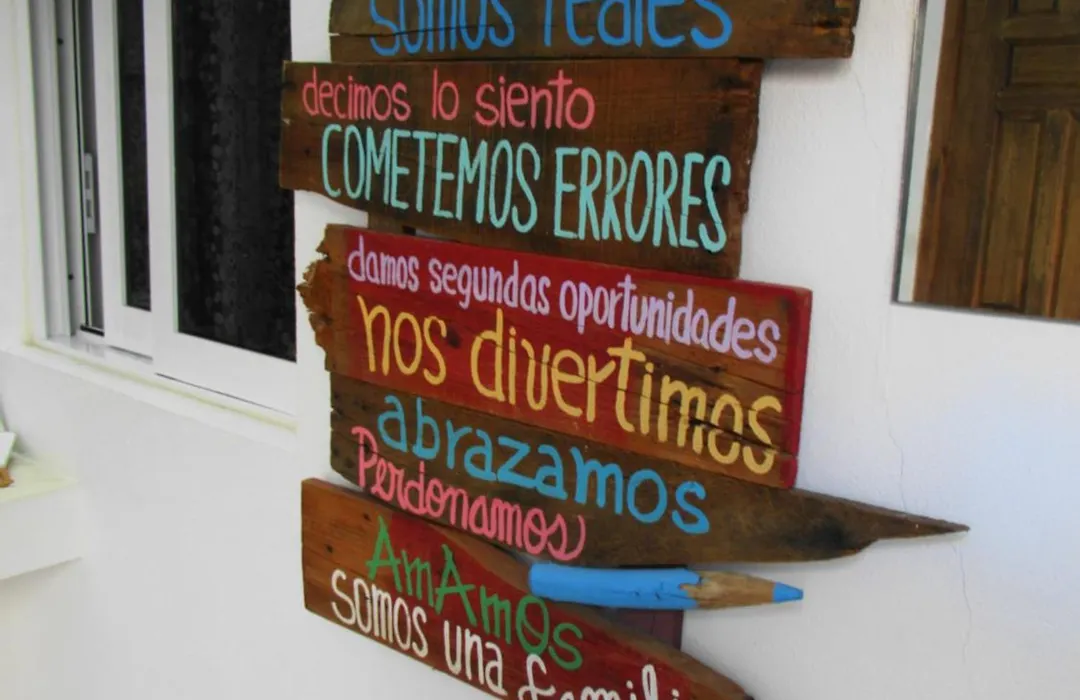 somos reales
decimos lo siento
COMETEMOS ERRORES
damos segundas oportunidades
nos divertimos
abrazamos
Perdonamos
AmAmOs
somos una famili